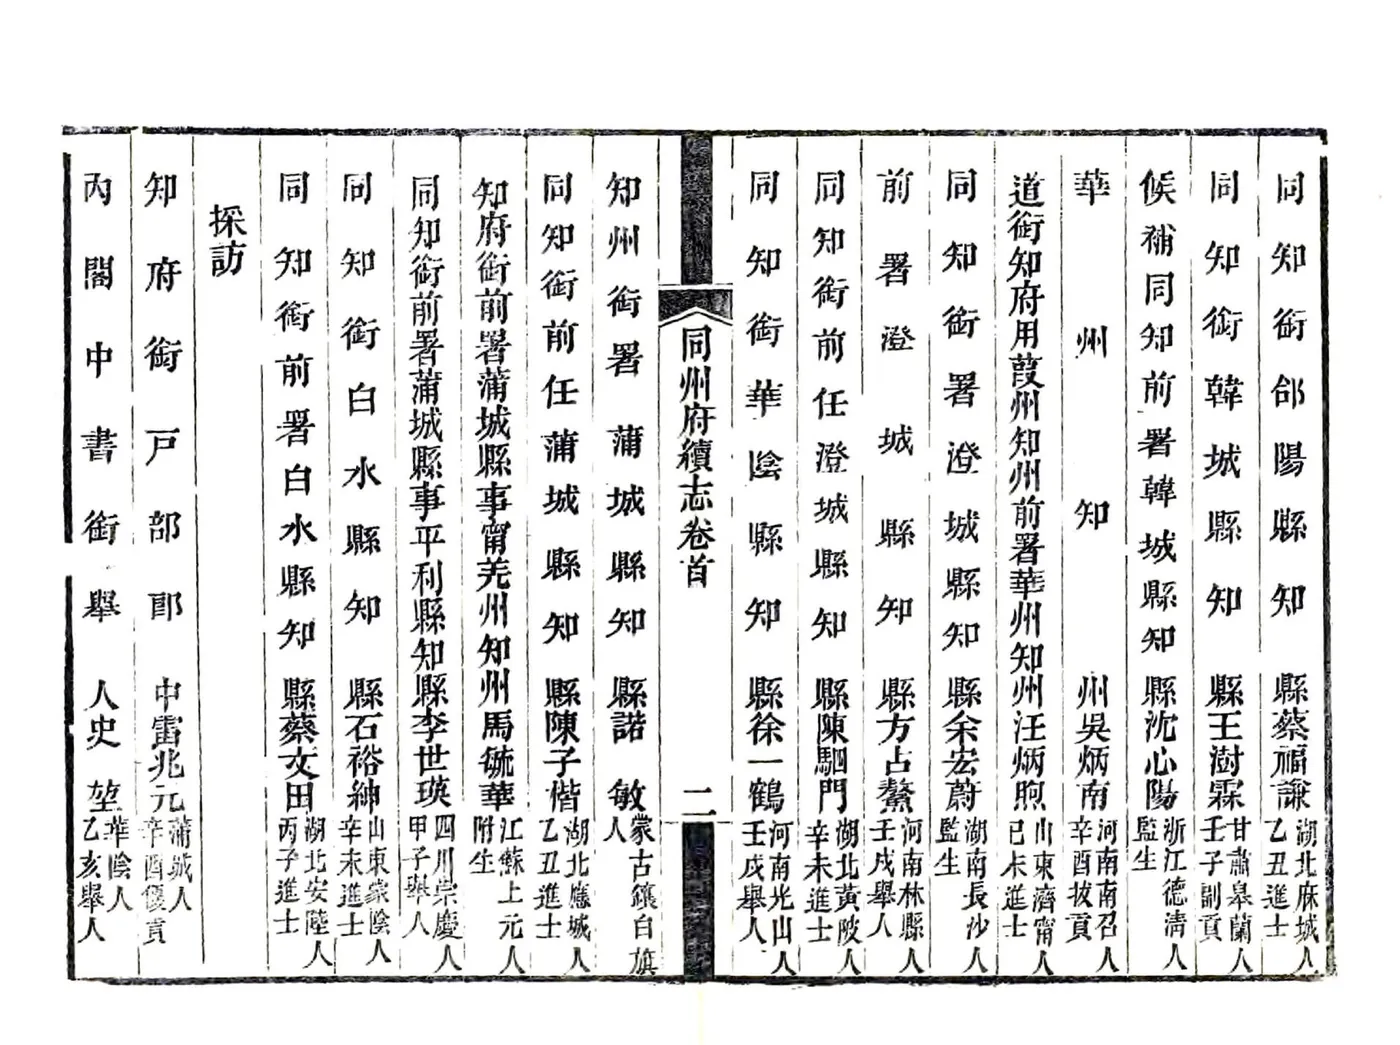 同知銜郃陽縣知縣蔡福謙湖北麻城人乙丑進士
同知銜韓城縣知縣王澍霖甘肅皋蘭人壬子副貢
候補同知前署韓城縣知縣沈心陽浙江德淸人監生
華州知州吳炳南河南南召人辛酉拔貢
道銜知府用葭州知州前署華州知州汪炳煦山東濟甯人己未進士
同知銜署澄城縣知縣余宏蔚湖南長沙人監生
前署澄城縣知縣方占鰲河南林縣人壬戌舉人
同知銜前任澄城縣知縣陳駟門湖北黃陂人辛未進士
同知銜華陰縣知縣徐一鶴河南光山人壬戌舉人
同州府續志卷首
二
知州銜署蒲城縣知縣諾敏蒙古鑲白旗人
同知銜前任蒲城縣知縣陳子楷湖北應城人乙丑進士
知府銜前署蒲城縣事甯羌州知州馬毓華江蘇上元人附生
同知銜前署蒲城縣事平利縣知縣李世瑛四川崇慶人甲子舉人
同知銜白水縣知縣石裕紳山東蒙陰人辛未進士
同知銜前署白水縣知縣蔡文田湖北安陸人丙子進士
採訪
知府銜戸部郎中雷兆元蒲城人辛酉優貢
內閣中書銜舉人史堃華陰人乙亥舉人